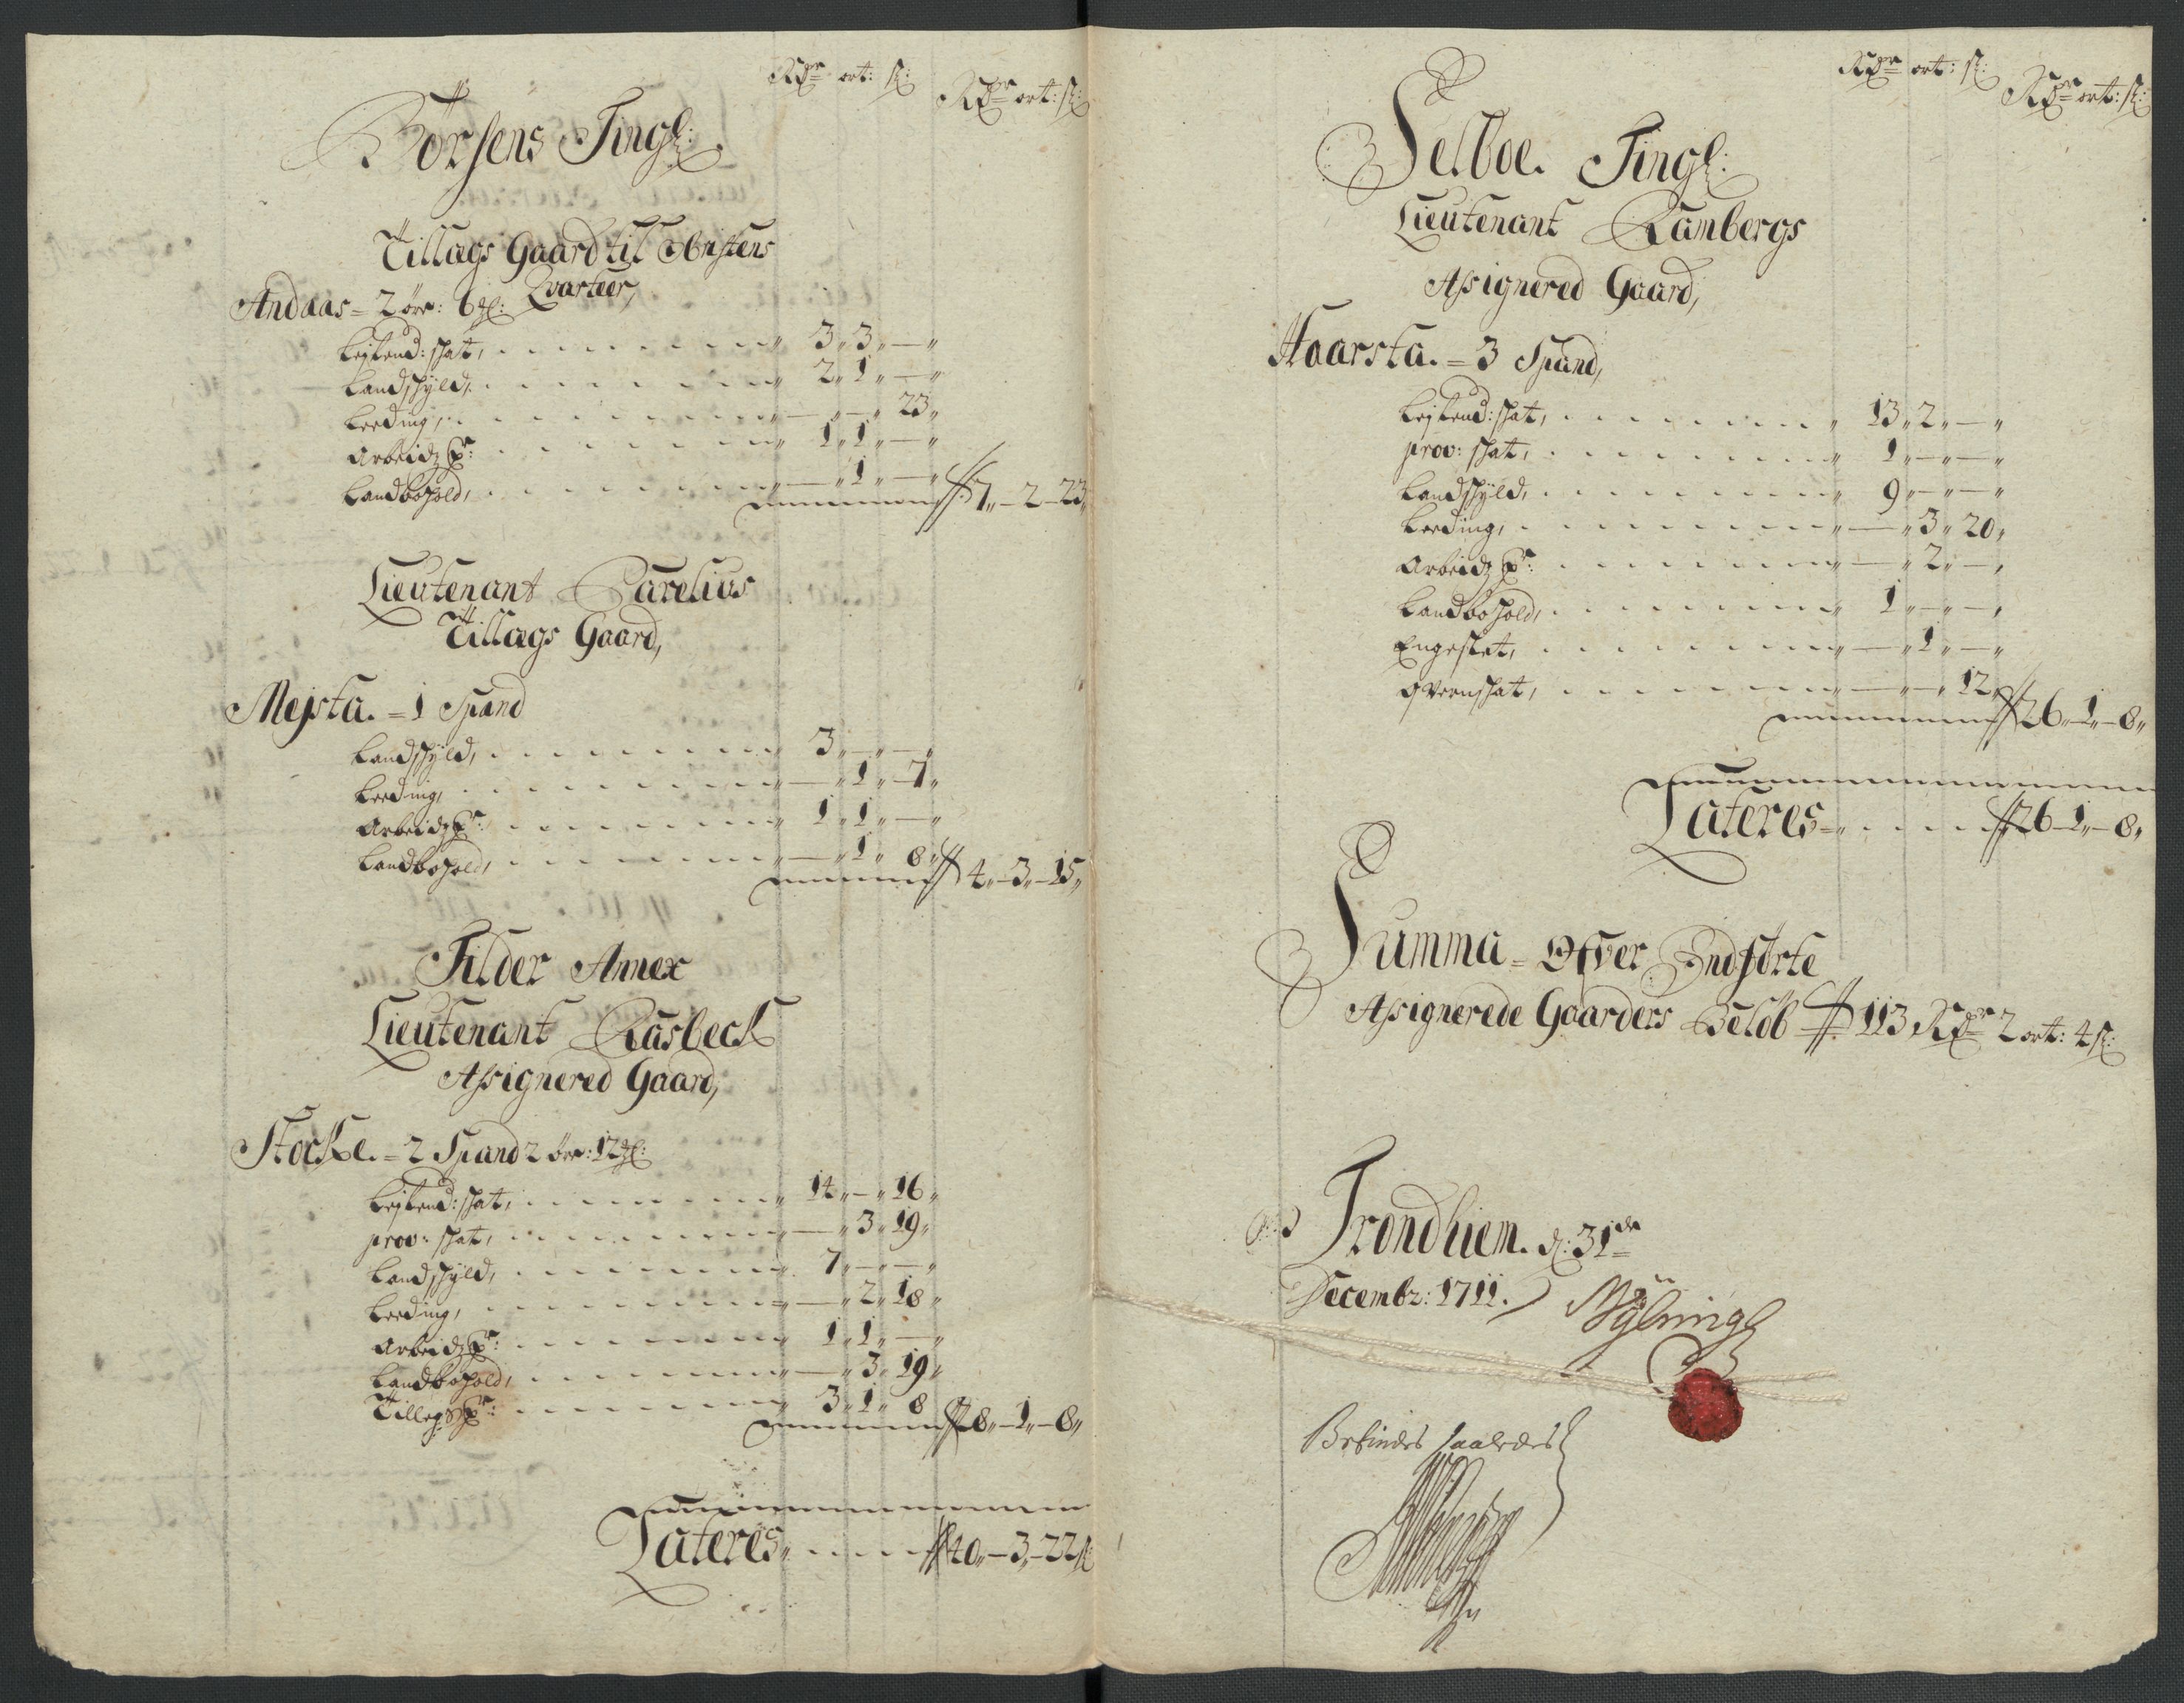 Rdr ort: s:
Rdr ort: s:
Börsens Tingl:
Tillægs Gaard til Obristens
Qvarteer,
Andaas = 2 ören: 6 gl:
Leilend: skat, 3 „ 3 „ — „
Landskyld, 2 „ 1 „ — „
Leeding, — „ — „ 23 „
Arbeidz P: 1 „ 1 „ — „
Landbohold, — „ 1 „ — „
7 „ — 2 — 23 „
Lieutenant Carelius
Tillægs Gaard,
Mejsta. = 1 Spand
Landskyld, 3 „ — „ — „
Leeding, — „ 1 „ 7 „
Arbeidz P: 1 „ 1 „ — „
Landbohold, — „ 1 „ 8 „
4 „ — 3 „ — 15 „
Tilder Annex
Lieutenant Rasbeck
Assignered Gaard,
Stocke. = 2 Spand 2 ören: 12 gl:
Leilend: skat, 14 „ — „ 16 „
prov: skat, — „ 3 „ 19 „
Landskyld, 7 „ — „ — „
Leeding, — „ 2 „ 18 „
Arbeidz P: 1 „ 1 „ — „
Landbohold, — „ 3 „ 19 „
Tillegs P: 3 „ 1 „ 8
28 „ — 1 „ — 8 „
Lateres „ 40 „ — 3 „ — 22 s:
Rdr ort: s:
Rdr ort: s:
Selboe. Tingl:
Lieutenant Rambergs
Assignered Gaard,
Haarsta. = 3 Spand,
Leilend: skat, 13 „ 2 „ — „
prov: skat, 1 „ — „ — „
Landskyld, 9 „ — „ — „
Leeding, — „ 3 „ 20 „
Arbeidz P: — „ 2 „ — „
Landbohold, 1 „ — „ — „
Engeslet, — „ 1 „ — „
Qvernskat, — „ — „ 12 „
26 „ — 1 „ — 8 „
Lateres = 26 — 1 „ — 8 „
Summa = Ofver Indförte
Assignerede Gaarders Belöb 113 Rdr 2 ort: 4 s:
Trondhiem. d: 31de
Decembr: 1711.
Befindes saaledes